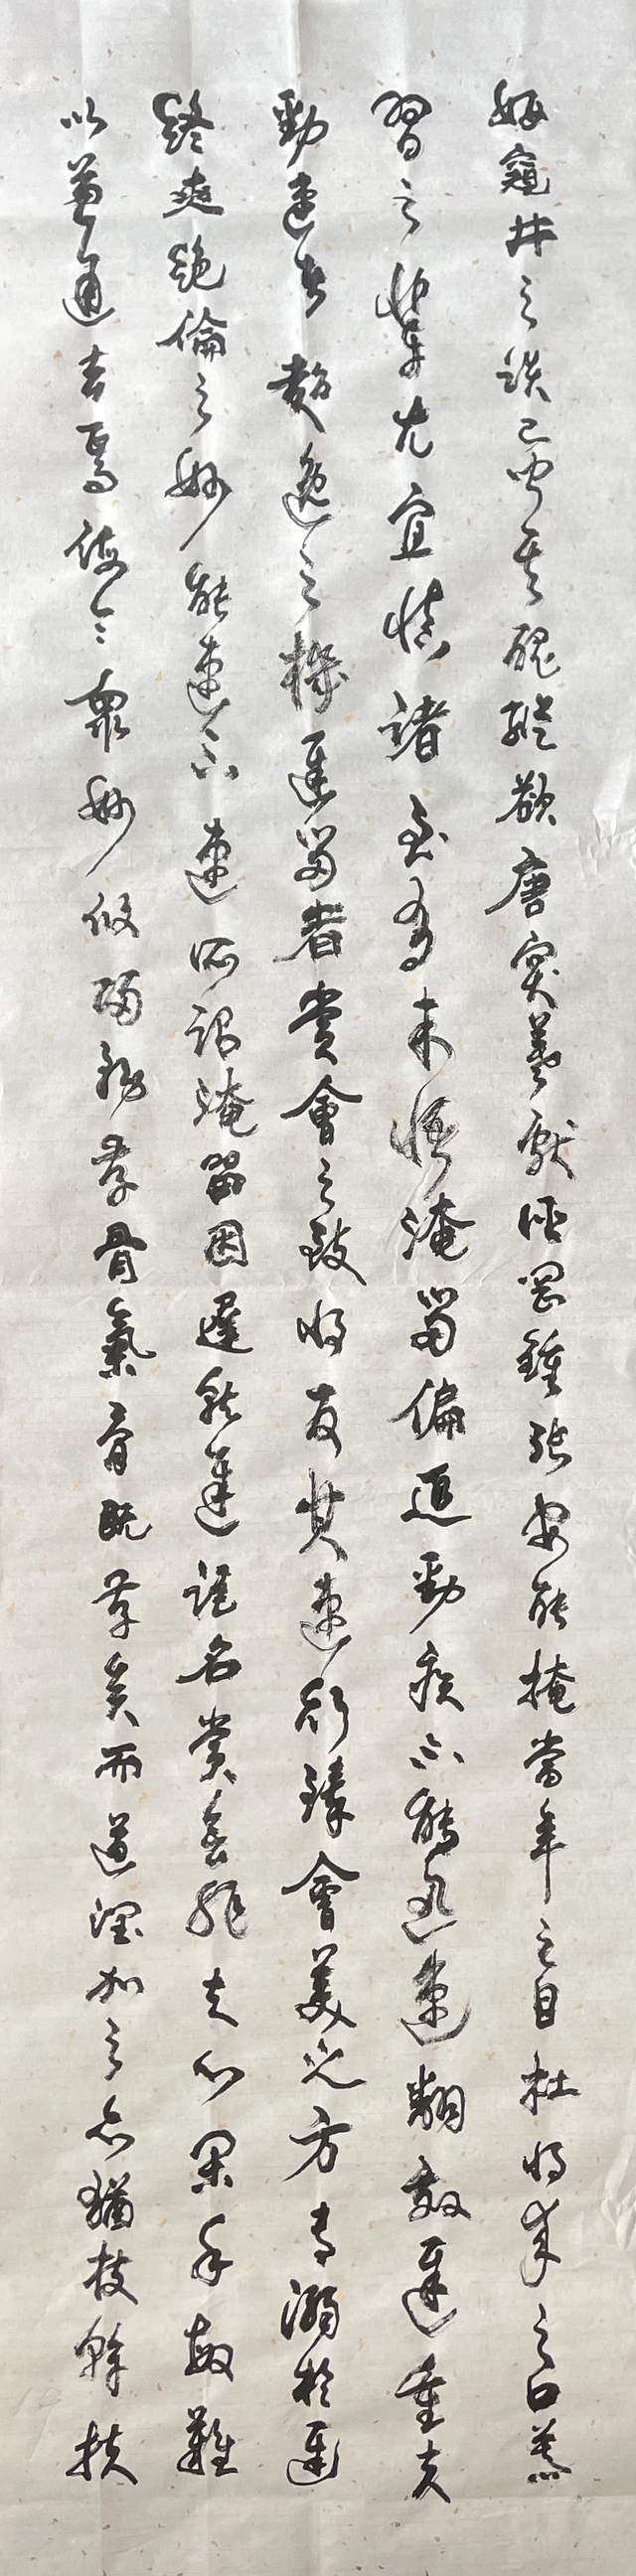 窺井之談已聞其醜縱欲唐突羲獻誣罔鍾張安能掩當年之目杜將來之口慕
習之輩尤宜慎諸至有未悟淹留偏追勁疾不能迅速翻效遲重夫
勁速者超逸之機遲留者賞會之致將反其速行臻會美之方專溺於遲
終爽絕倫之妙能速不速所謂淹留因遲就遲詎名賞會非夫心閑手敏難
以兼通者焉假令衆妙攸歸務存骨氣骨既存矣而遒潤加之亦猶枝幹扶